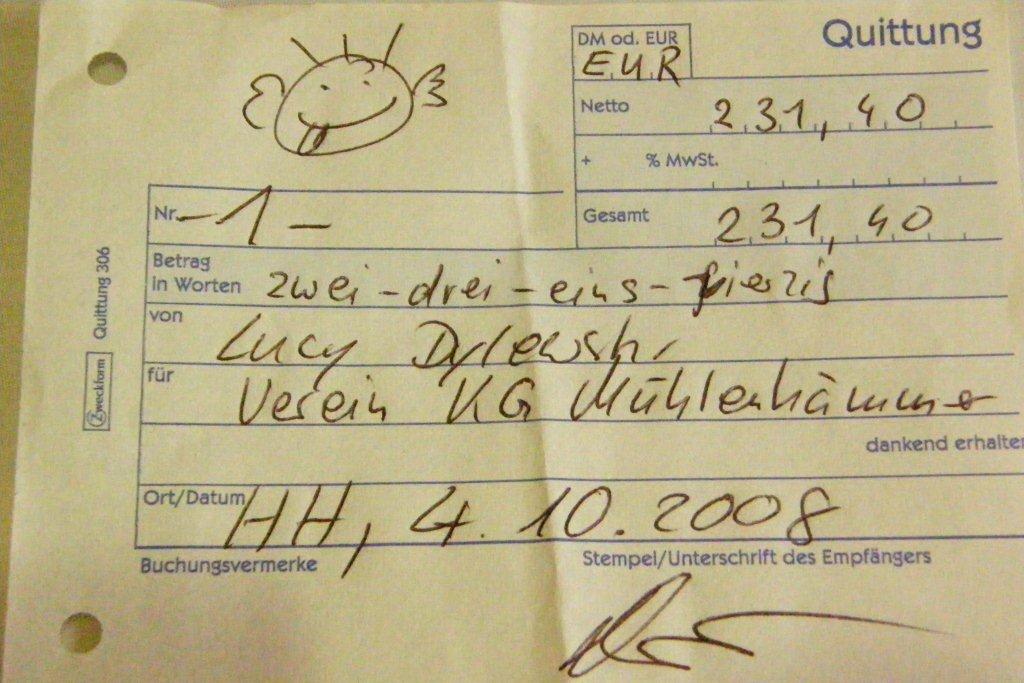 Quittung
DM od. EUR
EUR
Netto 231,40
+ % MwSt.
Nr. -1-
Gesamt 231,40
Betrag
in Worten zwei-drei-eins-vierzig
von Lucy Dylewski
für Verein KG Mühlenhämmer
dankend erhalten
Ort/Datum HH, 4.10.2008
Buchungsvermerke
Stempel/Unterschrift des Empfängers
Zweckform Quittung 306